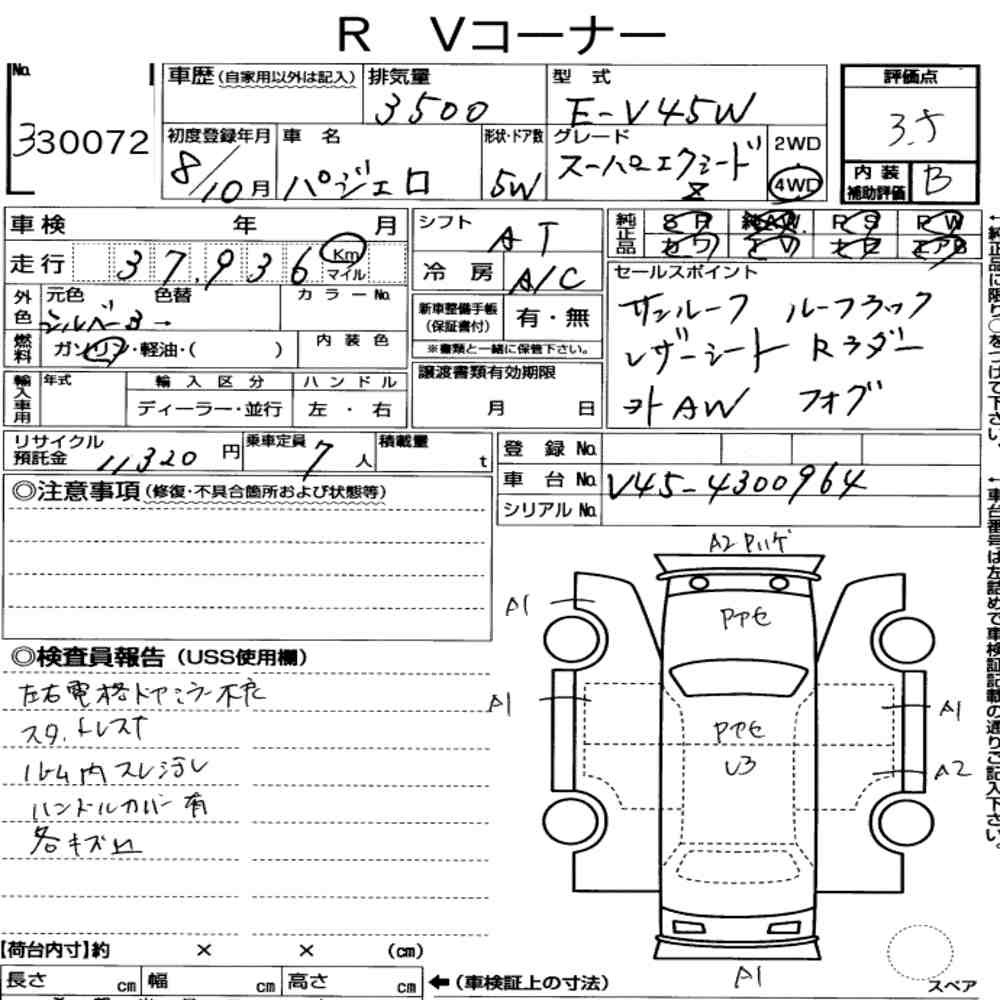 R Vコーナー
No. 330072
車歴(自家用以外は記入)
排気量 3500
型 式 E-V45W
評価点 3.5
初度登録年月 8/10月
車 名 パジェロ
形状・ドア数 5W
グレード スーパーエクシード Z
2WD
4WD
内 装 補助評価 B
車 検 年 月
走 行 37,936 Km マイル
シフト AT
冷 房 A/C
純正品 SR 純AW PS PW
カワ TV ナビ エアB
外色 元色 シルバー 色替 → カラーNo.
燃料 ガソリン・軽油・( ) 内 装 色
新車整備手帳(保証書付) 有・無
※書類と一緒に保管下さい。
セールスポイント
サンルーフ ルーフラック
レザーシート Rラダー
ヨト AW フォグ
輸入車用 年式 輸 入 区 分 ハ ン ド ル
ディーラー・並行 左 ・ 右
譲渡書類有効期限
月 日
リサイクル預託金 11320 円
乗車定員 7 人
積載量 t
登 録 No.
車 台 No. V45-4300964
シリアル No.
◎注意事項(修復・不具合箇所および状態等)
◎検査員報告(USS使用欄)
左右電格ドアミラー不良
スタッドレス
ルーム内スレ汚レ
ハンドルカバー有
各キズ凹
A2 Pハゲ
A1
Pアセ
A1
A1
Pアセ
U3
A2
A1
スペア
【荷台内寸】約 × × (cm)
長さ cm 幅 cm 高さ cm
←(車検証上の寸法)
←純正品に限り○をつけて下さい。
←車台番号は左詰めで車検証記載の通りご記入下さい。